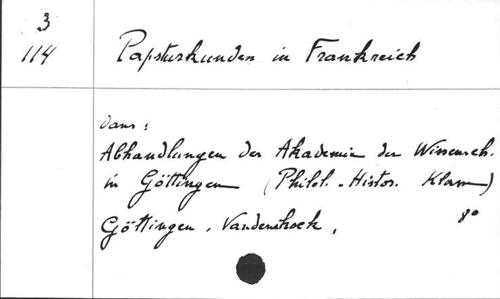 3
114
Papsturkunden in Frankreich
dans :
Abhandlungen der Akademie der Wissensch.
in Göttingen (Philol. - Histor. Klasse)
Göttingen, Vandenhoek, 8°